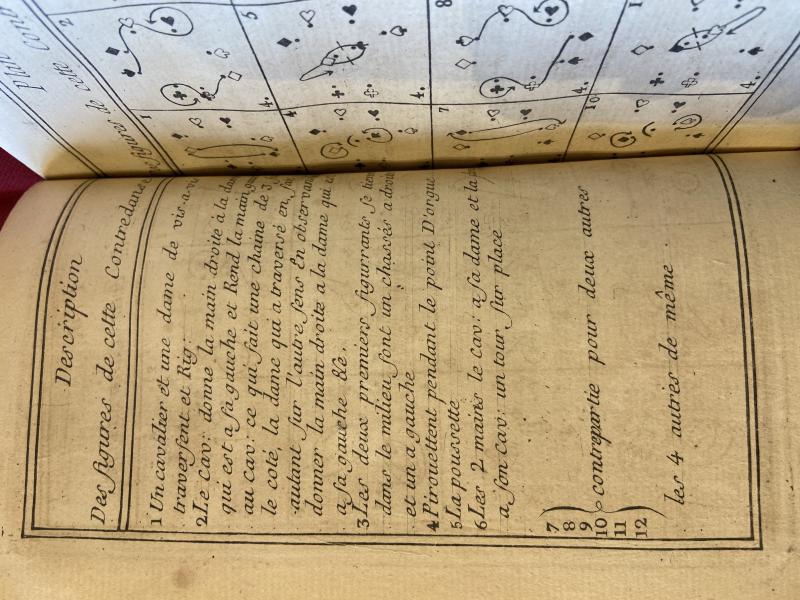 Description
Des figures de cette Contredanse
1 Un cavalier et une dame de vis-a-vis
traversent et Rig:
2 Le cav: donne la main droite à la
qui est a sa gauche et Rend la main
au cav: ce qui fait une chaine de 3
le coté, la dame qui a traversé en
autant sur l'autre sens En observant
donner la main droite a la dame qui
a sa gauche &c.
3 Les deux premiers figurrants se
dans le milieu font un chassés a
et un a gauche
4 Pirouettent pendant le point D'orgue
5 La poussette
6 Les 2 mains le cav: a sa dame et la
a son cav: un tour sur place
7
8
9
10 contrepartie pour deux autres
11
12
les 4 autres de même.
Plan
figures de cette
1
2
4
5
7
8
10